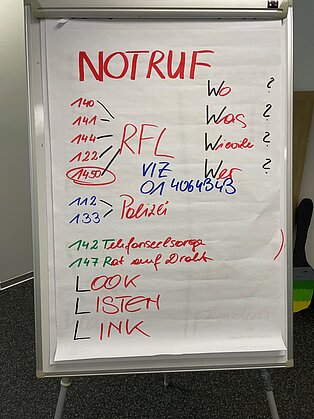 NOTRUF
Wo ?
140
Was ?
141
144
Wieviele ?
122
RFL
Wer ?
1450
VIZ
01 4064343
112
133
Polizei
142 Telefonseelsorge
147 Rat auf Draht
LOOK
LISTEN
LINK